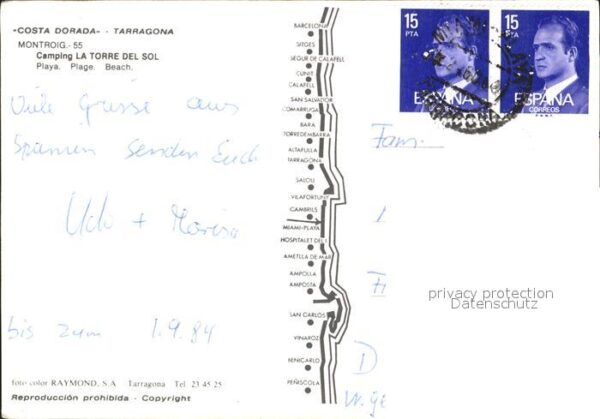 «COSTA DORADA» - TARRAGONA
MONTROIG.- 55
Camping LA TORRE DEL SOL
Playa. Plage. Beach.
Viele Grüsse aus
Spanien senden Euch
Udo + Marina
bis zum 1.9.84
foto color RAYMOND, S.A Tarragona Tel 23 45 25
Reproducción prohibida - Copyright
BARCELONA
SITGES
SEGUR DE CALAFELL
CUNIT
CALAFELL
SAN SALVADOR
COMARRUGA
BARA
TORREDEMBARRA
ALTAFULLA
TARRAGONA
SALOU
VILAFORTUNY
CAMBRILS
MIAMI-PLAYA
HOSPITALET DEL I.
AMETLLA DE MAR
AMPOLLA
AMPOSTA
SAN CARLOS
VINAROZ
BENICARLO
PEÑISCOLA
15 PTA
ESPAÑA
15 PTA
ESPAÑA
CORREOS
F.N.M.T.
Fam.
D
W. ge
privacy protection
Datenschutz